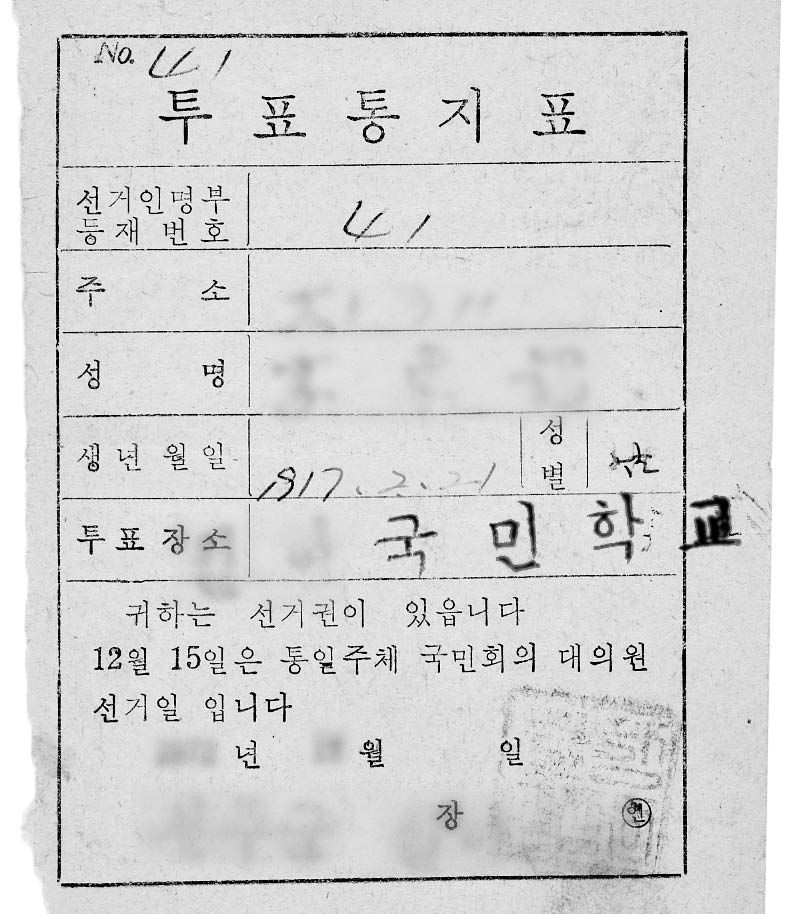 No. 41
투표통지표
선거인명부 등재번호 41
주소
성명
생년월일 1917.2.21 성별
투표장소 국민학교
귀하는 선거권이 있읍니다
12월 15일은 통일주체 국민회의 대의원
선거일 입니다
년 월 일
장